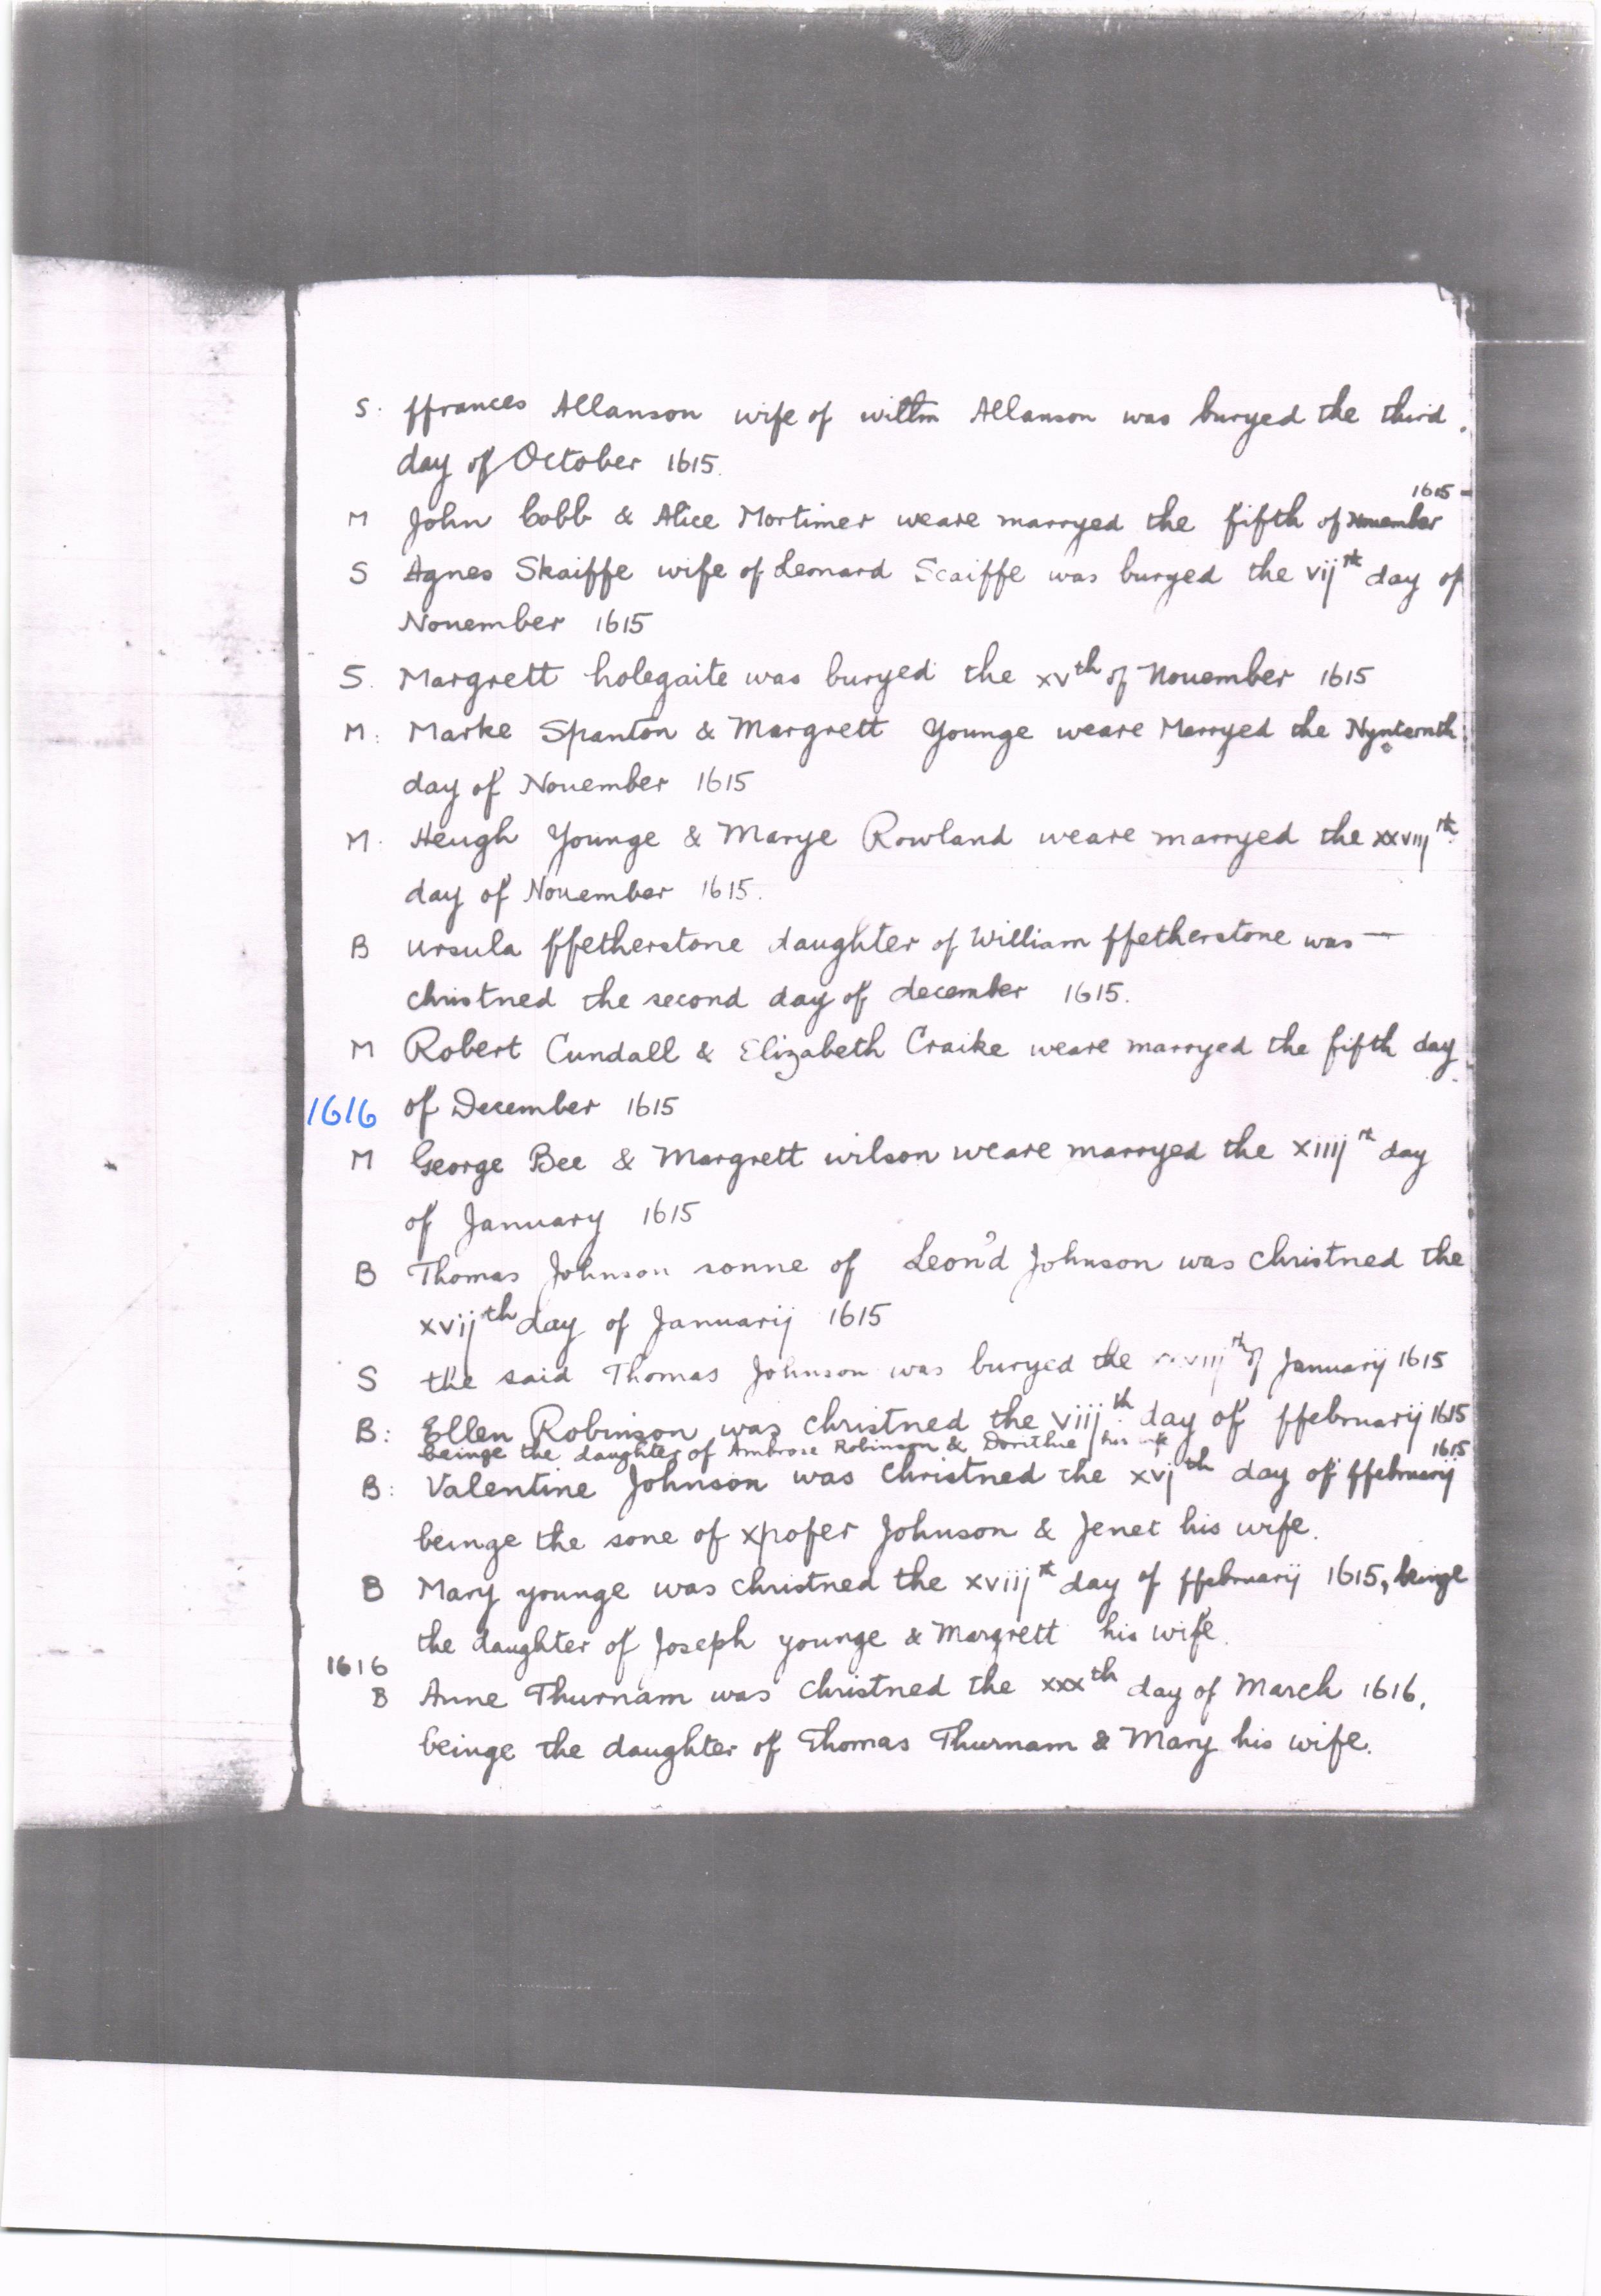 S. ffrances Allanson wife of willm Allanson was buryed the third
day of October 1615.
1615 -
M John Cobb & Alice Mortimer weare marryed the fifth of November
S Agnes Skaiffe wife of Leonard Scaiffe was buryed the vijth day of
Nouember 1615
S. Margrett holegaite was buryed the xvth of Nouember 1615
M: Marke Spanton & Margrett Younge weare Marryed the Nynteenth
day of Nouember 1615
M. Heugh Younge & Marye Rowland weare marryed the xxviijth
day of Nouember 1615.
B ursula ffetherstone daughter of William ffetherstone was —
christned the second day of december 1615.
M Robert Cundall & Elizabeth Craike weare marryed the fifth day
1616 of December 1615
M George Bee & Margrett wilson weare marryed the xiiijth day
of January 1615
B Thomas Johnson sonne of Leon'd Johnson was christned the
xvijth day of Januarij 1615
S the said Thomas Johnson was buryed the of Januarij 1615
B: Ellen Robinson was christned the viijth day of ffebruarij 1615
beinge the daughter of Ambrose Robinson & Dorithie his wife
1615
B: Valentine Johnson was christned the xvjth day of ffebruarij
beinge the sone of xpofer Johnson & Jenet his wife.
B Mary younge was christned the xviijth day of ffebruarij 1615, beinge
the daughter of Joseph younge & Margrett his wife.
1616
B Anne Thurnam was christned the xxxth day of March 1616,
beinge the daughter of Thomas Thurnam & Mary his wife.